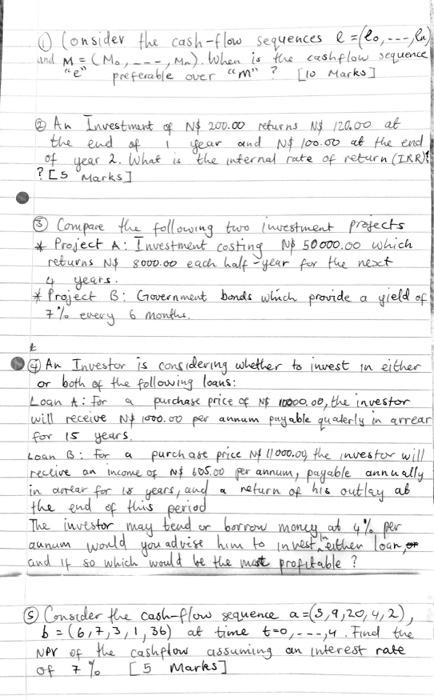 ① Consider the cash-flow sequences l = (l₀, ---, ln)
and M = (M₀, ---, Mn). When is the cashflow sequence
"e" preferable over "m" ? [10 Marks]
② An Investment of N$ 200.00 returns N$ 120.00 at
the end of 1 year and N$ 100.00 at the end
of year 2. What is the internal rate of return (IRR)?
? [5 Marks]
③ Compare the following two investment projects
* Project A: Investment costing N$ 50 000.00 which
returns N$ 8000.00 each half-year for the next
4 years.
* Project B: Government bonds which provide a yield of
7% every 6 months.
④ An Investor is considering whether to invest in either
or both of the following loans:
Loan A: For a purchase price of N$ 10000.00, the investor
will receive N$ 1000.00 per annum payable quaterly in arrear
for 15 years.
Loan B: For a purchase price N$ 11000.00, the investor will
receive an income of N$ 605.00 per annum, payable annually
in arrear for 18 years, and a return of his outlay at
the end of this period
The investor may lend or borrow money at 4% per
annum would you advise him to invest in either loan, or
and if so which would be the most profitable ?
⑤ Consider the cash-flow sequence a = (5, 9, 20, 4, 2),
b = (6, 7, 3, 1, 36) at time t=0, ---, 4. Find the
NPV of the cashflow assuming an interest rate
of 7% [5 Marks]